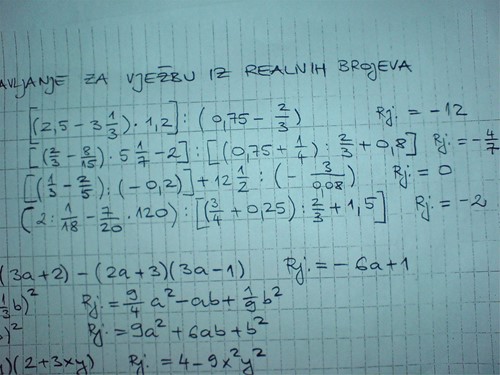 AVLJANJE ZA VJEŽBU IZ REALNIH BROJEVA
[(2,5 - 3 1/3) · 1,2] : (0,75 - 2/3) Rj. = -12
[(2/3 - 8/15) · 5 1/7 - 2] : [(0,75 + 1/4) : 2/3 + 0,8] Rj. = -4/7
[(1/3 - 2/5) : (-0,2)] + 12 1/2 : (- 3/0,08) Rj. = 0
(2 : 1/18 - 7/20 · 120) : [(3/4 + 0,25) : 2/3 + 1,5] Rj. = -2
(3a+2) - (2a+3)(3a-1) Rj. = -6a+1
1/3 b)² Rj. = 9/4 a² - ab + 1/9 b²
)² Rj. = 9a² + 6ab + b²
)(2+3xy) Rj. = 4 - 9x²y²